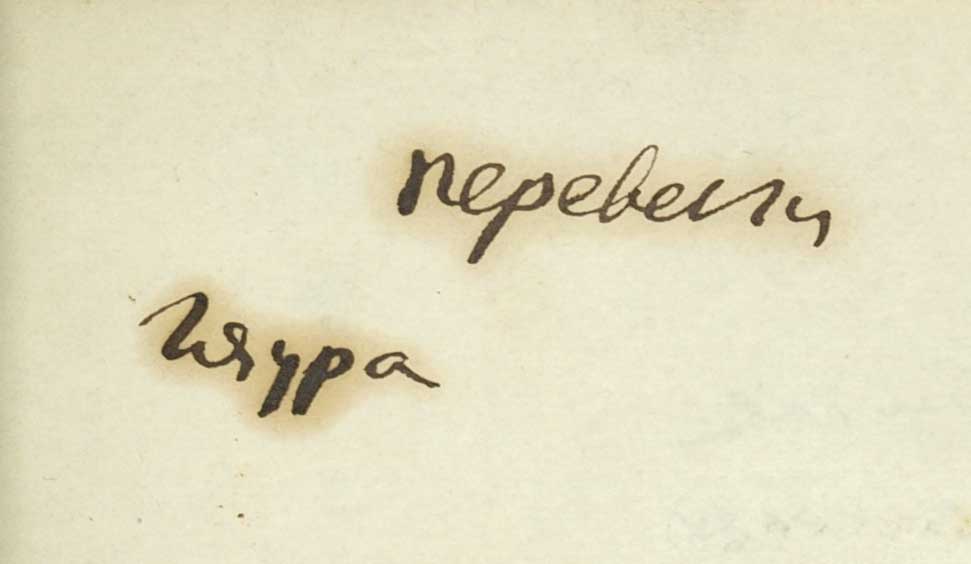 перевели
гяура